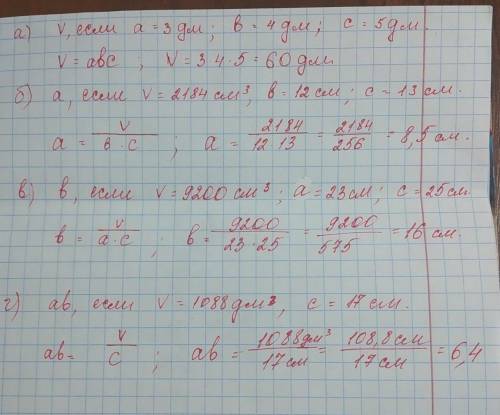 а) V, если a = 3 дм; в = 4 дм; c = 5 дм.
V = авс ; V = 3·4·5 = 60 дм
б) а, если V = 2184 см³, в = 12 см; с = 13 см.
a = V / в·с ; a = 2184 / 12·13 = 2184 / 256 = 8,5 см.
в) в, если V = 9200 см³; a = 23 см; с = 25 см
в = V / а·с ; в = 9200 / 23·25 = 9200 / 575 = 16 см.
г) ав, если V = 1088 дм³, с = 17 см.
ав = V / с ; ав = 1088 дм³ / 17 см = 108,8 см / 17 см = 6,4